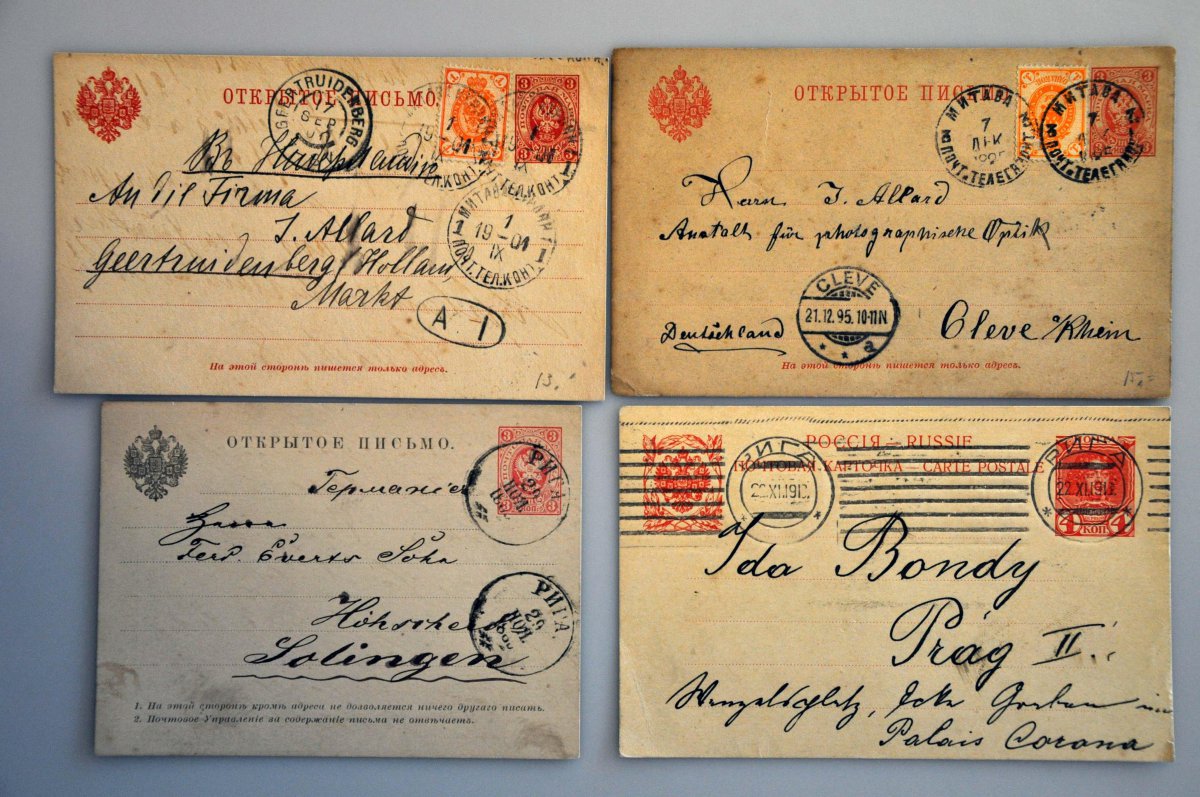 ОТКРЫТОЕ ПИСЬМО.
GEERTRUIDENBERG
4
3
МИТАВА
1
19-01
IX
ПОЧТ.ТЕЛ.КОНТ.
An die Firma
J. Allard
Geertruidenberg/Holland,
Markt
A I
На этой сторонѣ пишется только адресъ.
13.
ОТКРЫТОЕ ПИСЬМО
МИТАВА
7
ДЕК
1895
ПОЧТ.ТЕЛЕГР.
3
Herrn J. Allard
Anstalt für photographische Optik
CLEVE
21.12.95.10-11N
* * a
Deutschland
Cleve a/Rhein
На этой сторонѣ пишется только адресъ.
15.=
ОТКРЫТОЕ ПИСЬМО.
3
РИГА
29
НОЯ
Германiя
Herrn
Ferd. Everts Söhne
РИГА
29
НОЯ
Höhscheid
Solingen
1. На этой сторонѣ кромѣ адреса не дозволяется ничего другаго писать.
2. Почтовое Управленiе за содержанiе письма не отвѣчаетъ.
РОССIЯ - RUSSIE
ПОЧТОВАЯ КАРТОЧКА - CARTE POSTALE
РИГА
22.XI.191
РИГА
22.XI.191
4 КОП. 4
Ida Bondy
Prág II.
Wenzelsplatz, Ecke Graben im
Palais Corona